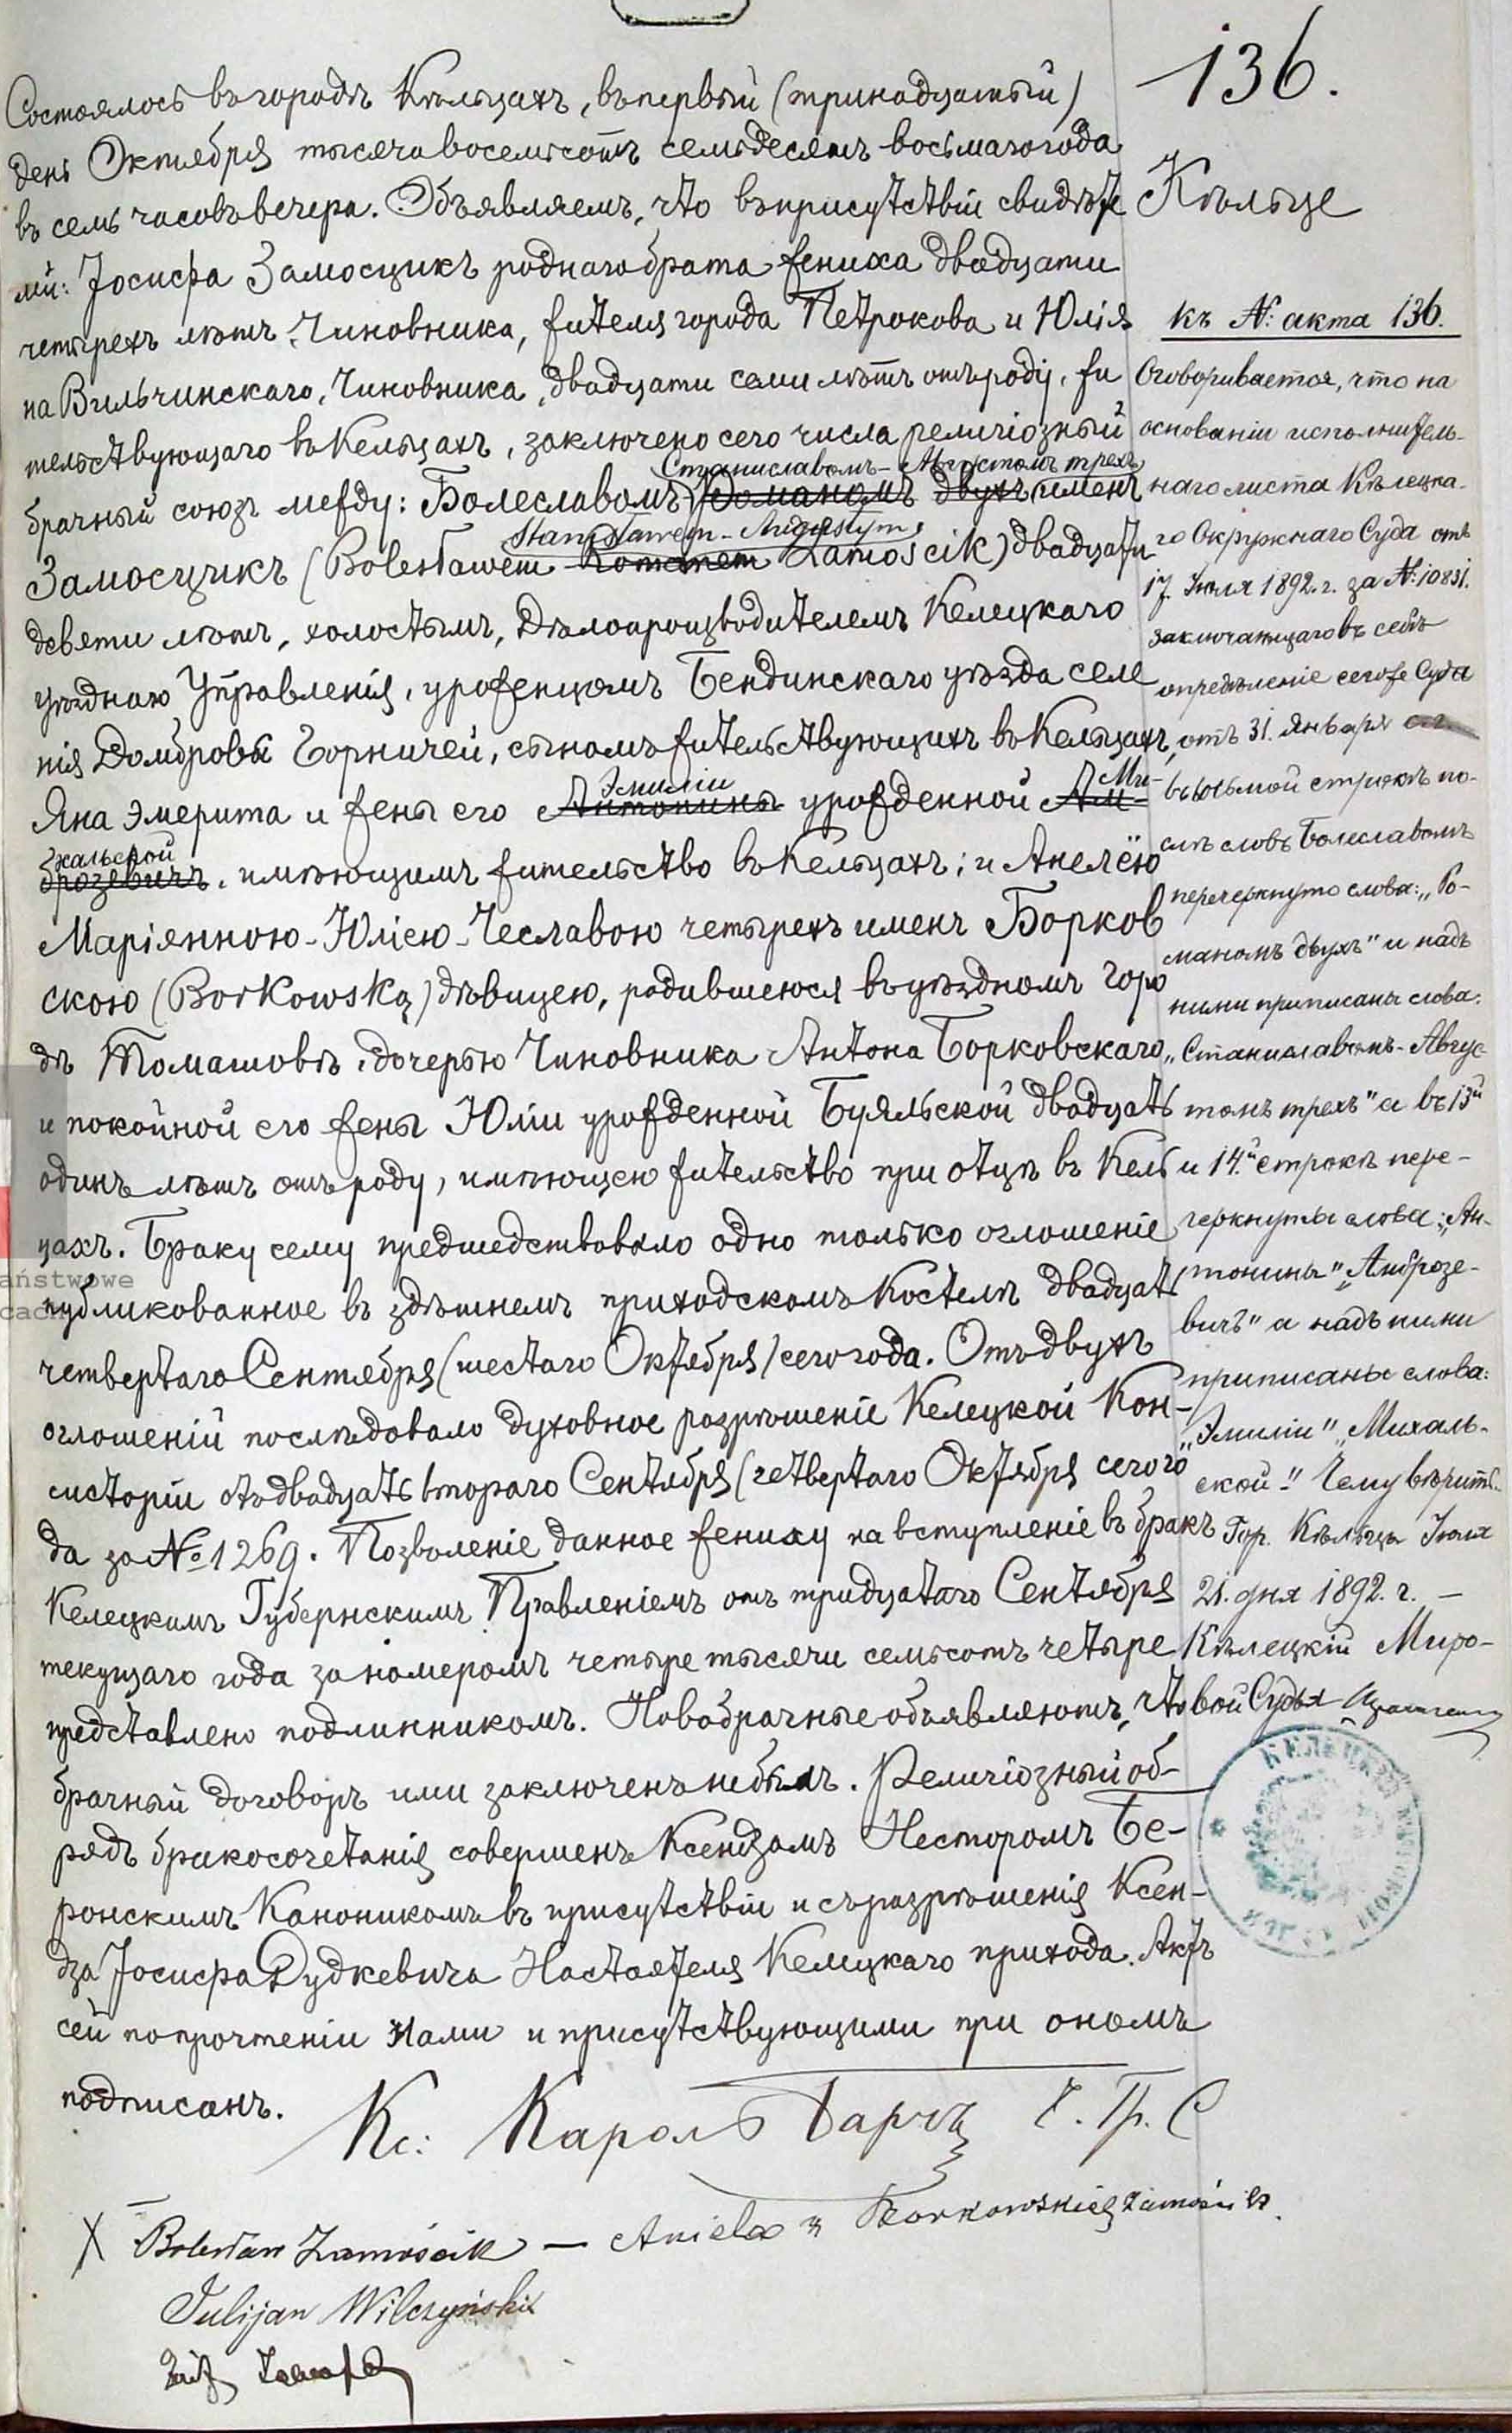 136.
Кѣльце
Состоялось въ городѣ Кѣльцахъ, въ первый (тринадцатый)
день Октября тысяча восемьсотъ семьдесятъ восьмаго года
въ семь часовъ вечера. Объявляемъ, что въ присутствіи свидѣте
лей: Іосифа Замосцикъ роднаго брата жениха двадцати
четырехъ лѣтъ, Чиновника, жителя города Петрокова и Юлія
на Вильчинскаго, Чиновника, двадцати семи лѣтъ отъ роду, жи
тельствующаго въ Кельцахъ, заключено сего числа религіозный
Станиславомъ-Августомъ трехъ
брачный союзъ между: Болеславомъ Романомъ двухъ именъ
Stanisławem-Augustym
Замосцикъ (Bolesławem Romanem Zamoscik) двадцати
девяти лѣтъ, холостымъ, Дѣлопроизводителемъ Келецкаго
уѣзднаго Управленія, уроженцомъ Бендинскаго уѣзда селе
нія Домбровы Горничей, сыномъ жительствующихъ въ Кельцахъ,
Эмиліи Ми-
Яна Эмерита и жены его Антонины урожденной Ам-
хальской
брозевичъ, имѣющимъ жительство въ Кельцахъ; и Анелёю
Маріянною-Юліею-Чеславою четырехъ именъ Борков
скою (Borkowską) дѣвицею, родившеюся въ уѣздномъ горо
дѣ Томашовѣ, дочерью Чиновника Антона Борковскаго
и покойной его жены Юліи урожденной Буяльской двадцать
одинъ лѣтъ отъ роду, имѣющею жительство при отцѣ въ Кель
цахъ. Браку сему предшедствовало одно только оглошеніе
публикованное въ здѣшнемъ приходскомъ Костелѣ двадцать
четвертаго Сентября (шестаго Октября) сего года. Отъ двухъ
оглошеній послѣдовало духовное разрѣшеніе Келецкой Кон-
систоріи отъ двадцать втораго Сентября (четвертаго Октября сего го
да за № 1269. Позволеніе данное жениху на вступленіе въ бракъ
Келецкимъ Губернскимъ Правленіемъ отъ тридцатаго Сентября
текущаго года за номеромъ четыре тысячи семьсотъ четыре
представлено подлинникомъ. Новобрачные объявляютъ, что
брачный договоръ ими заключенъ небылъ. Религіозный об-
рядъ бракосочетанія совершенъ Ксендзомъ Несторомъ Бе-
ронскимъ Каноникомъ въ присутствіи и съ разрѣшенія Ксен-
дза Іосифа Рудкевича Настоятеля Келецкаго прихода. Актъ
сей по прочтеніи Нами и присутствующими при ономъ
подписанъ.
Кс: Кароль Ч. Гр. С
X Bolesław Zamościk — Aniela z Borkowskich Zamościk
Julijan Wilczyński
къ №: акта 136.
Оговоривается, что на
основаніи исполнитель-
наго листа Кѣлецка-
го Окружнаго Суда отъ
17. Іюля 1892. г. за №: 10831.
заключающаго въ себѣ
опредѣленіе сегоже Суда
отъ 31. Января
въ восьмой строкѣ по-
слѣ словъ Болеславомъ
перечеркнуто слова: „Ро-
маномъ двухъ" и надъ
ними приписаны слова:
„Станиславомъ-Авгус-
томъ трехъ" а въ 13й
и 14.й строкѣ пере-
черкнуты слова: „Ан-
тонины" „Амброзе-
вичъ" а надъ ними
приписаны слова:
„Эмиліи" „Михаль-
ской." Чему вѣрить.
Гор. Кѣльцы Іюля
21. дня 1892. г. —
Кѣлецкій Миро-
вой Судья